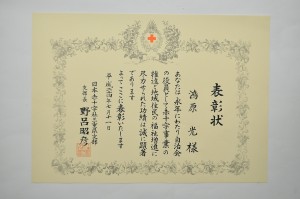 表彰状
鴻原 光 様
あなたは永年にわたり自治会
の役員として赤十字事業の
推進と地域住民の福祉増進に
尽力せられた功績は誠に顕著
であります
よってここに表彰いたします
平成二十四年七月十一日
日本赤十字社三重県支部
支部長 野呂昭彦